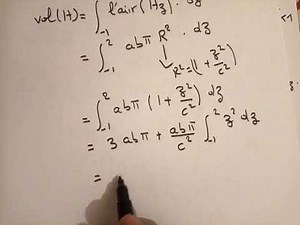 vol(H) = ∫₋₁² l'air(H_z) · dz
= ∫₋₁² abπ R² · dz
R² = (1 + z²/c²)
= ∫₋₁² abπ (1 + z²/c²) dz
= 3 abπ + abπ/c² ∫₋₁² z² dz
=